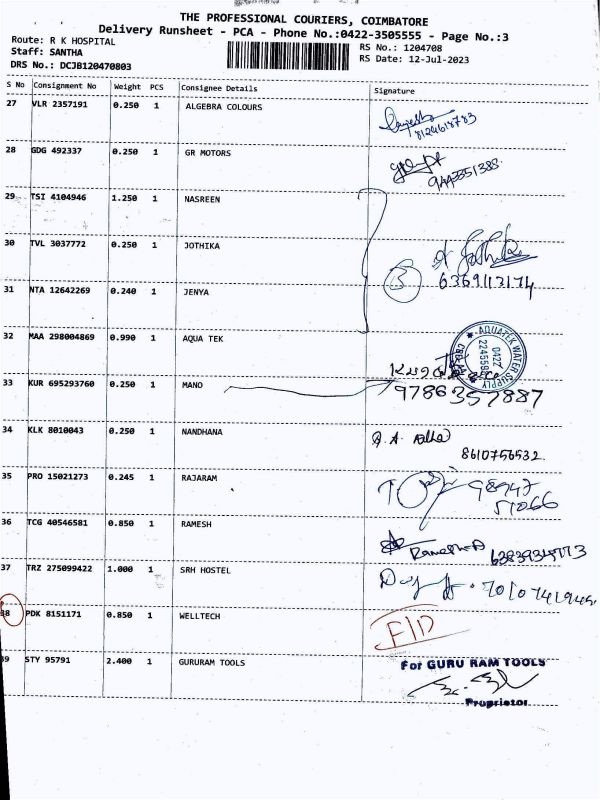 THE PROFESSIONAL COURIERS, COIMBATORE
Delivery Runsheet - PCA - Phone No.:0422-3505555 - Page No.:3
Route: R K HOSPITAL
Staff: SANTHA
DRS No.: DCJB120470803
RS No.: 1204708
RS Date: 12-Jul-2023
S No Consignment No Weight PCS Consignee Details Signature
27 VLR 2357191 0.250 1 ALGEBRA COLOURS
28 GDG 492337 0.250 1 GR MOTORS
29 TSI 4104946 1.250 1 NASREEN
30 TVL 3037772 0.250 1 JOTHIKA
3
31 NTA 12642269 0.240 1 JENYA
32 MAA 298004869 0.990 1 AQUA TEK
AQUATEK WATER SUPPLY
0422
33 KUR 695293760 0.250 1 MANO
9786357887
34 KLK 8010043 0.250 1 NANDHANA
8610756532
35 PRO 15021273 0.245 1 RAJARAM
36 TCG 40546581 0.850 1 RAMESH
37 TRZ 275099422 1.000 1 SRH HOSTEL
38 PDK 8151171 0.850 1 WELLTECH
39 STY 95791 2.400 1 GURURAM TOOLS
For GURU RAM TOOLS
Proprietor